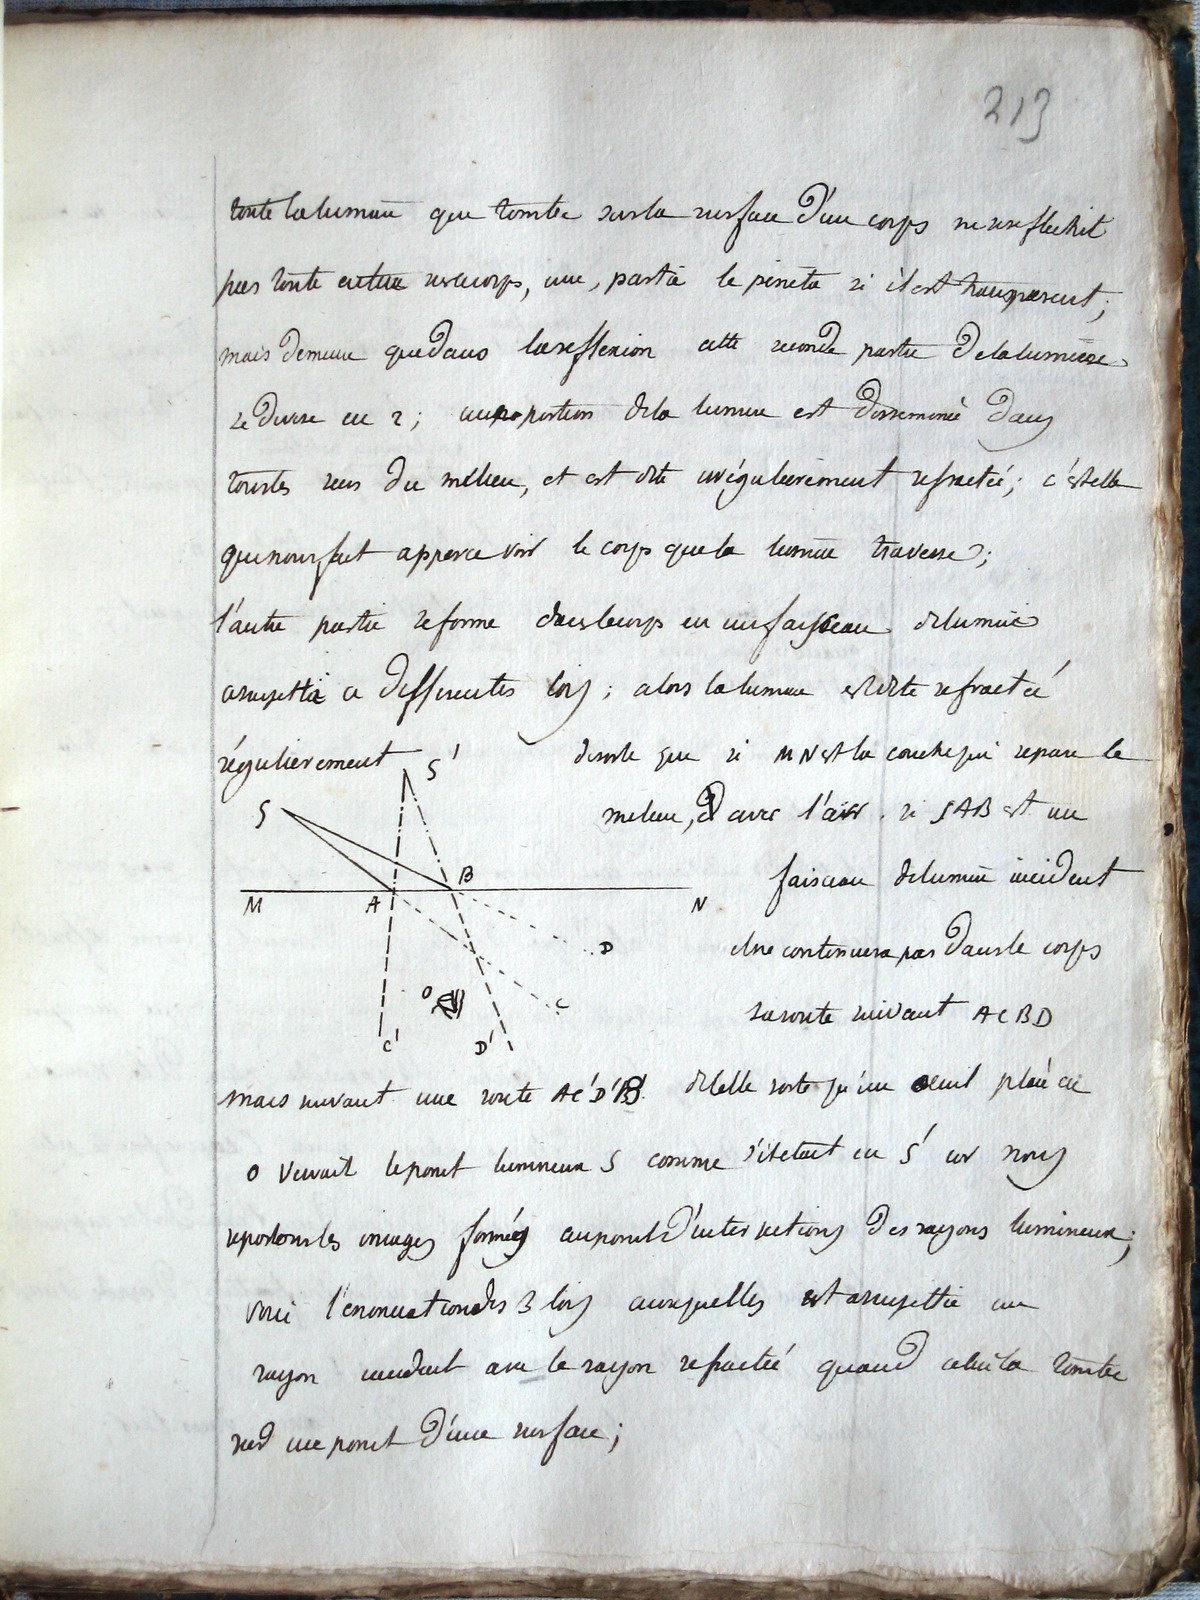 213
toute la lumiere que tombe sur la surface d'un corps ne se reflechit
pas toute entiere sur ce corps, une, partie le penetre si il est transparent;
mais de meme que dans la reflexion cette seconde partie de la lumiere
se divise en 2; une portion de la lumiere est disseminée dans
tous les sens du milieu, et est dite irrégulierement refractée; c'est elle
qui nous fait appercevoir le corps que la lumiere traverse;
l'autre partie se forme dans le corps en un faisceau de lumiere
assujettie a differentes lois; alors la lumiere est dite refractée
régulierement
S'
de sorte que si MN est la couche qui separe le
S
milieu, d avec l'air. si SAB est un
B
faisceau de lumiere incident
M A N
D
il ne continuera pas dans le corps
O
C
sa route suivant ACBD
C' D'
mais suivant une route AC'D'B. de telle sorte qu'un oeuil placé en
O verrait le point lumineux S comme s'il etait en S' car nous
reportons les images formées au point d'intersections des rayons lumineux;
voici l'enonciation des 3 lois auxquelles est assujettie un
rayon incident avec le rayon refractée quand celui la tombe
sur un point d'une surface;